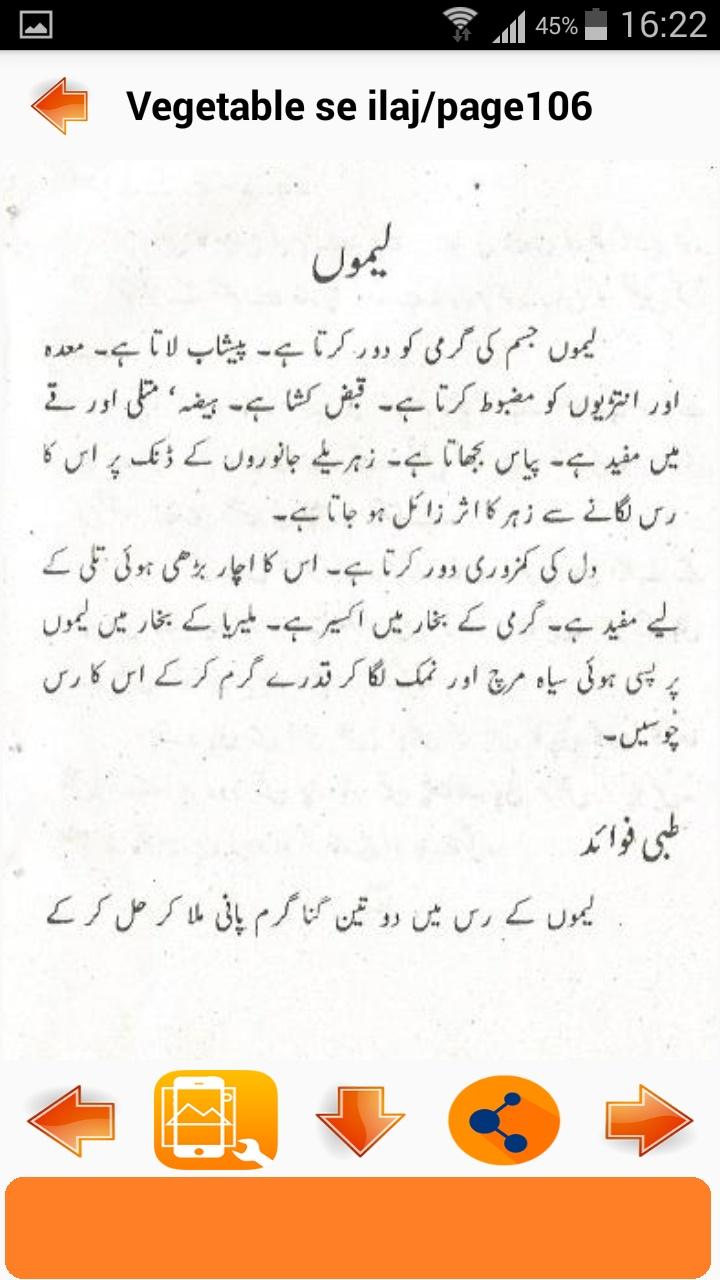 45% 16:22
Vegetable se ilaj/page106
لیموں
لیموں جسم کی گرمی کو دور کرتا ہے۔ پیشاب لاتا ہے۔ معدہ
اور انتڑیوں کو مضبوط کرتا ہے۔ قبض کشا ہے۔ ہیضہ، متلی اور قے
میں مفید ہے۔ پیاس بجھاتا ہے۔ زہریلے جانوروں کے ڈنک پر اس کا
رس لگانے سے زہر کا اثر زائل ہو جاتا ہے۔
دل کی کمزوری دور کرتا ہے۔ اس کا اچار بڑھی ہوئی تلی کے
لیے مفید ہے۔ گرمی کے بخار میں اکسیر ہے۔ ملیریا کے بخار میں لیموں
پر پسی ہوئی سیاہ مرچ اور نمک لگا کر قدرے گرم کر کے اس کا رس
چوسیں۔
طبی فوائد
لیموں کے رس میں دو تین گنا گرم پانی ملا کر حل کر کے